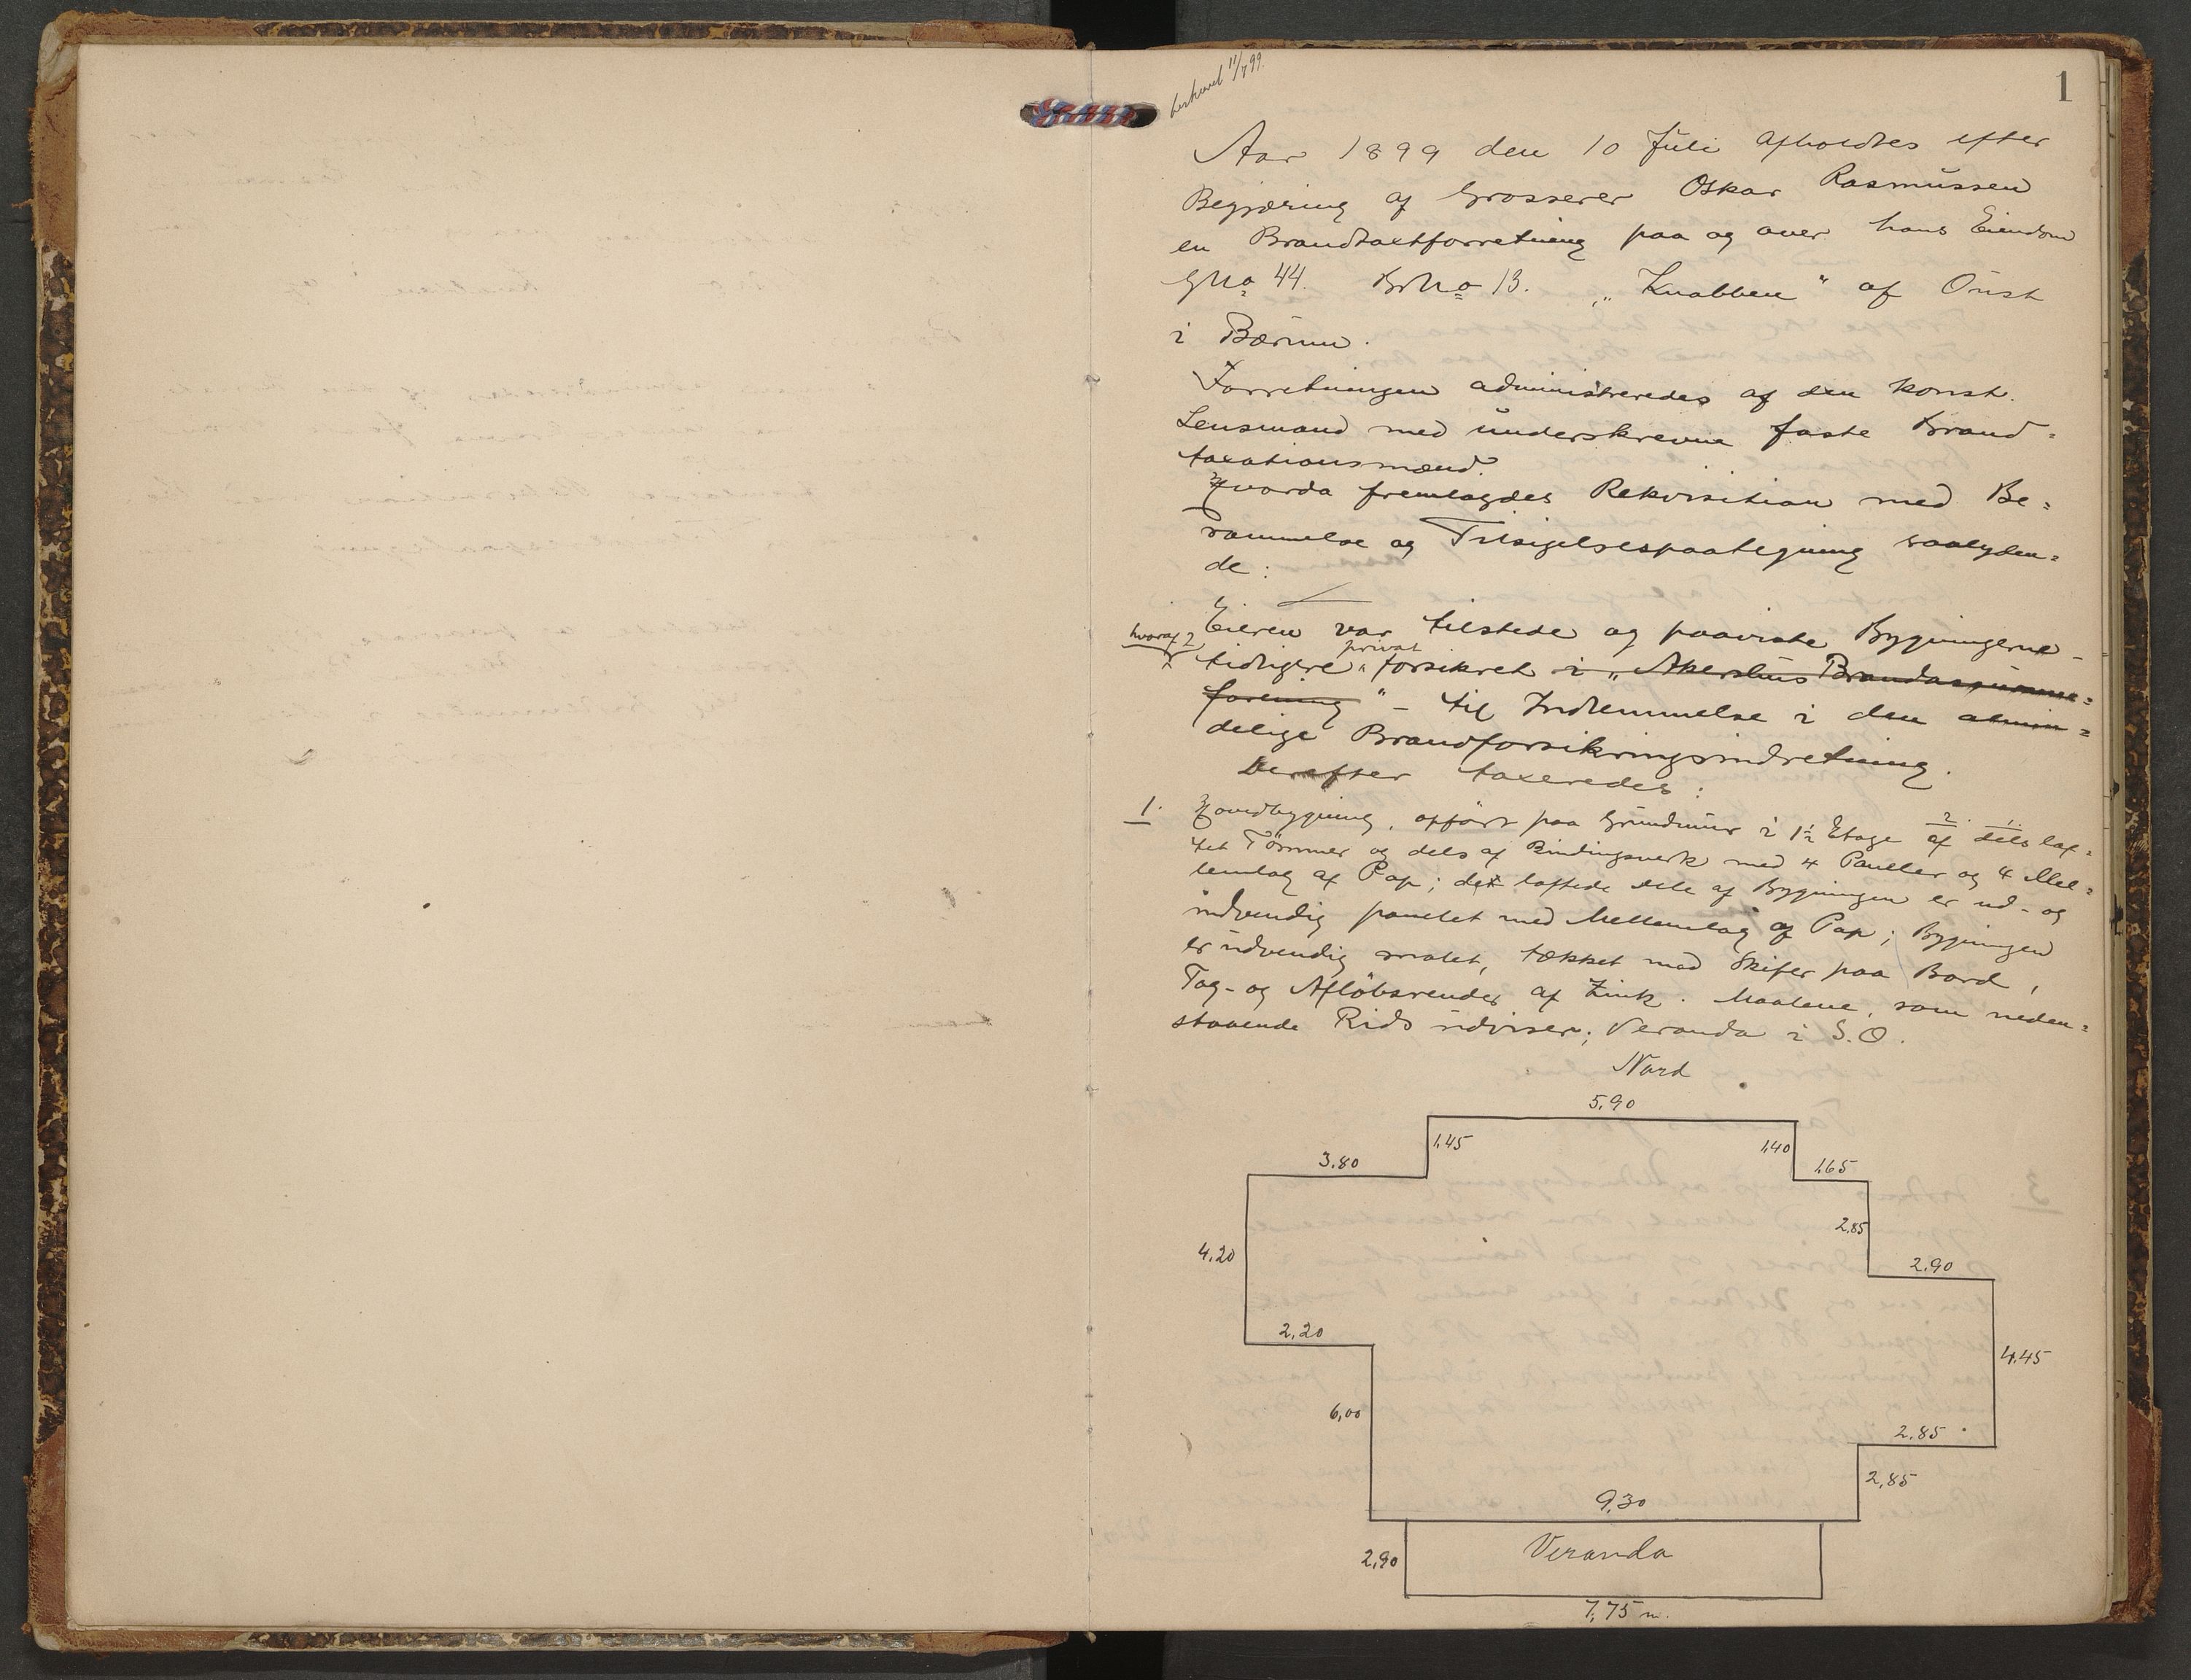 11/7 99.
1
Aar 1899 den 10 Juli afholdtes efter
Begjæring af Grosserer Oskar Rasmussen
en Brandtaxtforretning paa og over hans Eiendom
GNo 44. BrNo 13. „Knabben" af Öust
i Bærum.
Forretningen administreredes af den konst.
Lensmand med underskrevne faste Brand=
taxationsmænd.
Hvorda fremlagdes Rekvisition med Be=
rammelse og Tilsigelsespaategning saalyden=
de:
Eieren var tilstede og paaviste Bygningerne –
hvoraf 2
tidligere privat forsikret i „Akershus Brandassurance=
forening" – til Indlemmelse i den almin=
delige Brandforsikringsindretning.
Derefter taxeredes:
1. Hovedbygning, opført paa Grundmur i 1½ Etage af dels laf=
2. 1.
tet Tömmer og dels af Bindingsverk med 4 Paneller og 4 Mel=
lemlag af Pap; det laftede Dele af Bygningen er ud- og
indvendig panelet med Mellemlag af Pap; Bygningen
er udvendig malet, tækket med Skifer paa Bord,
Tag- og Aflöbsrender af Zink. Maalene, som neden=
staaende Rids udviser; Veranda i S.O.
Nord
5,90
1,45
1,40
3.80
1,65
2.85
4.20
2.90
2,20
4.45
6,00
2.85
2,85
9,30
2,90
Veranda
7,75 m.